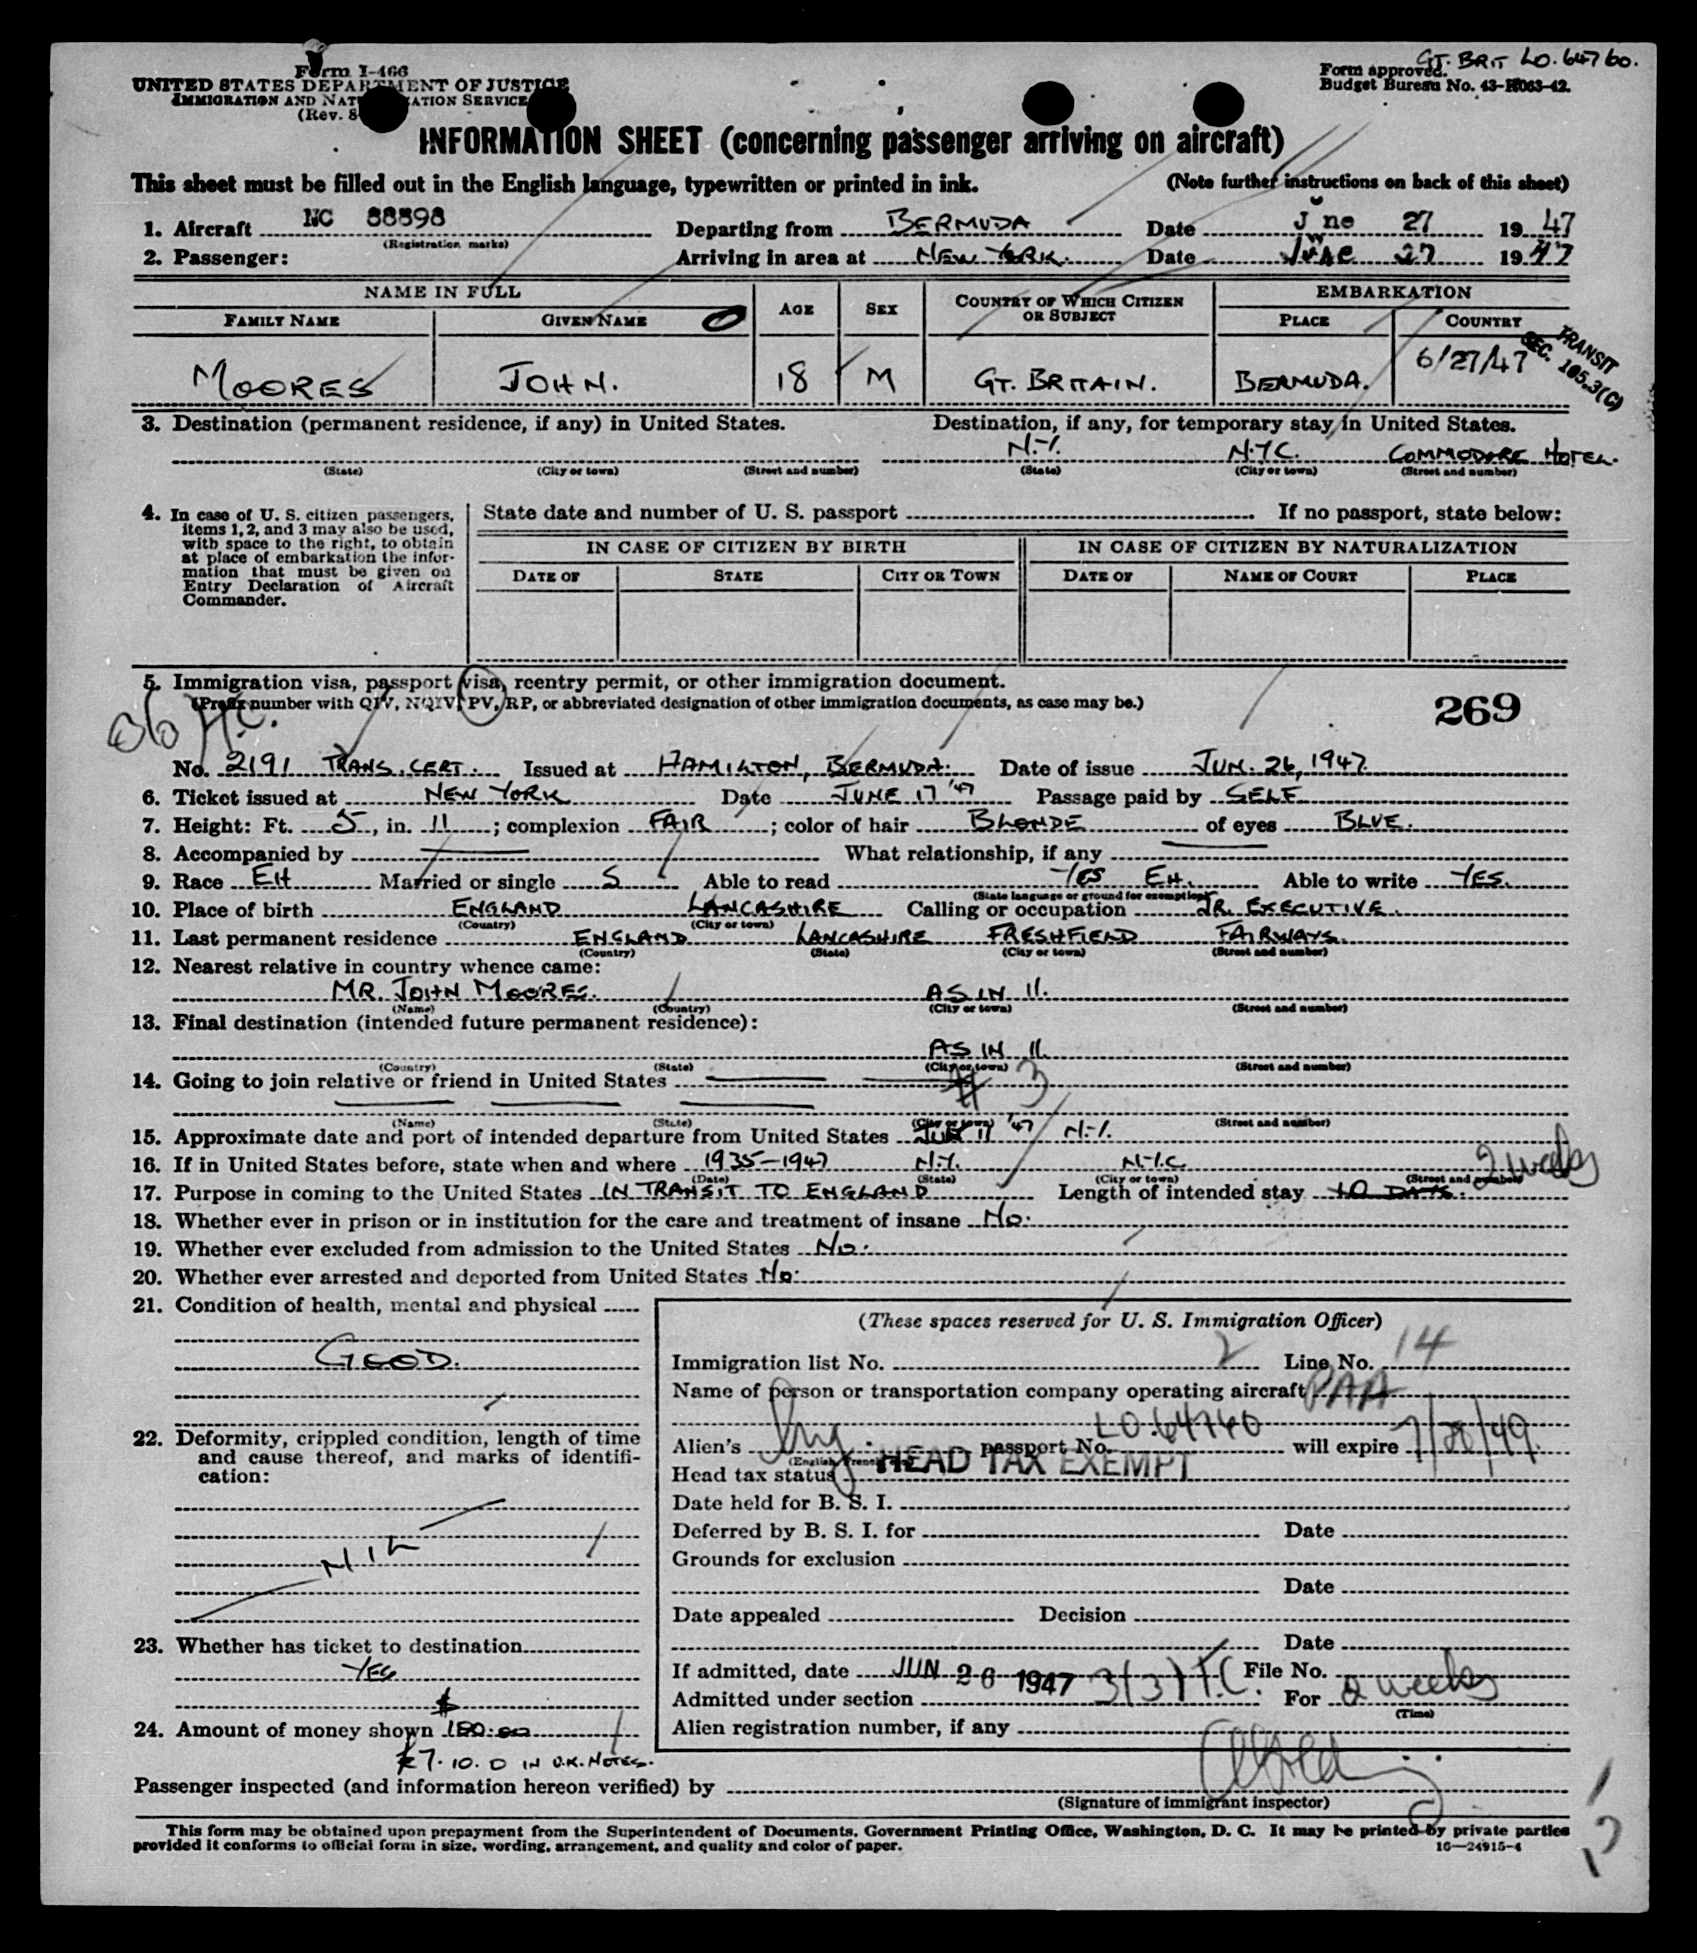 GT. BRIT LO. 64760.
Form I-466
UNITED STATES DEPARTMENT OF JUSTICE
IMMIGRATION AND NATURALIZATION SERVICE
(Rev. 8-
Form approved.
Budget Bureau No. 43-R063-42.
INFORMATION SHEET (concerning passenger arriving on aircraft)
This sheet must be filled out in the English language, typewritten or printed in ink. (Note further instructions on back of this sheet)
1. Aircraft NC 88898 Departing from BERMUDA Date June 27 1947
(Registration marks)
2. Passenger: Arriving in area at NEW YORK. Date June 27 1947
NAME IN FULL
FAMILY NAME GIVEN NAME AGE SEX COUNTRY OF WHICH CITIZEN OR SUBJECT EMBARKATION
PLACE COUNTRY
TRANSIT
SEC. 105.3(C)
MOORES JOHN. 18 M GT. BRITAIN. BERMUDA. 6/27/47
3. Destination (permanent residence, if any) in United States. Destination, if any, for temporary stay in United States.
N.Y. N.Y.C. COMMODORE HOTEL.
(State) (City or town) (Street and number) (State) (City or town) (Street and number)
4. In case of U. S. citizen passengers,
items 1, 2, and 3 may also be used,
with space to the right, to obtain
at place of embarkation the infor-
mation that must be given on
Entry Declaration of Aircraft
Commander.
State date and number of U. S. passport If no passport, state below:
IN CASE OF CITIZEN BY BIRTH IN CASE OF CITIZEN BY NATURALIZATION
DATE OF STATE CITY OR TOWN DATE OF NAME OF COURT PLACE
5. Immigration visa, passport visa, reentry permit, or other immigration document.
(Prefix number with QIV, NQIV, PV, RP, or abbreviated designation of other immigration documents, as case may be.)
269
No. 2191 TRANS. CERT. Issued at HAMILTON, BERMUDA. Date of issue JUN. 26, 1947
6. Ticket issued at NEW YORK Date JUNE 17 '47 Passage paid by SELF
7. Height: Ft. 5, in. 11; complexion FAIR; color of hair BLONDE of eyes BLUE.
8. Accompanied by What relationship, if any
9. Race EH Married or single S Able to read YES EH. Able to write YES.
(State language or ground for exemption)
10. Place of birth ENGLAND LANCASHIRE Calling or occupation JR. EXECUTIVE.
(Country) (City or town)
11. Last permanent residence ENGLAND LANCASHIRE FRESHFIELD FAIRWAYS.
(Country) (State) (City or town) (Street and number)
12. Nearest relative in country whence came:
MR. JOHN MOORES. AS IN 11.
(Name) (Country) (City or town) (Street and number)
13. Final destination (intended future permanent residence):
AS IN 11.
(Country) (State) (City or town) (Street and number)
14. Going to join relative or friend in United States
# 3
(Name) (State) (City or town) (Street and number)
15. Approximate date and port of intended departure from United States JULY 11 '47 N.Y.
16. If in United States before, state when and where 1935-1947 N.Y. N.Y.C.
(Date) (State) (City or town) (Street and number)
2 weeks
17. Purpose in coming to the United States IN TRANSIT TO ENGLAND Length of intended stay 10 DAYS.
18. Whether ever in prison or in institution for the care and treatment of insane No.
19. Whether ever excluded from admission to the United States No.
20. Whether ever arrested and deported from United States No.
21. Condition of health, mental and physical
GOOD.
22. Deformity, crippled condition, length of time
and cause thereof, and marks of identifi-
cation:
NIL
23. Whether has ticket to destination
YES
$
24. Amount of money shown 180.00
£7.10.0 IN U.K. NOTES.
(These spaces reserved for U. S. Immigration Officer)
Immigration list No. 2 Line No. 14
Name of person or transportation company operating aircraft PAA
Alien's passport No. LO.64760 will expire 7/28/49
Head tax status HEAD TAX EXEMPT
Date held for B. S. I.
Deferred by B. S. I. for Date
Grounds for exclusion
Date
Date appealed Decision
Date
If admitted, date JUN 26 1947 File No.
Admitted under section 3(3) T.C. For 2 weeks
(Time)
Alien registration number, if any
Passenger inspected (and information hereon verified) by
(Signature of immigrant inspector)
This form may be obtained upon prepayment from the Superintendent of Documents, Government Printing Office, Washington, D. C. It may be printed by private parties
provided it conforms to official form in size, wording, arrangement, and quality and color of paper. 16—24915-4